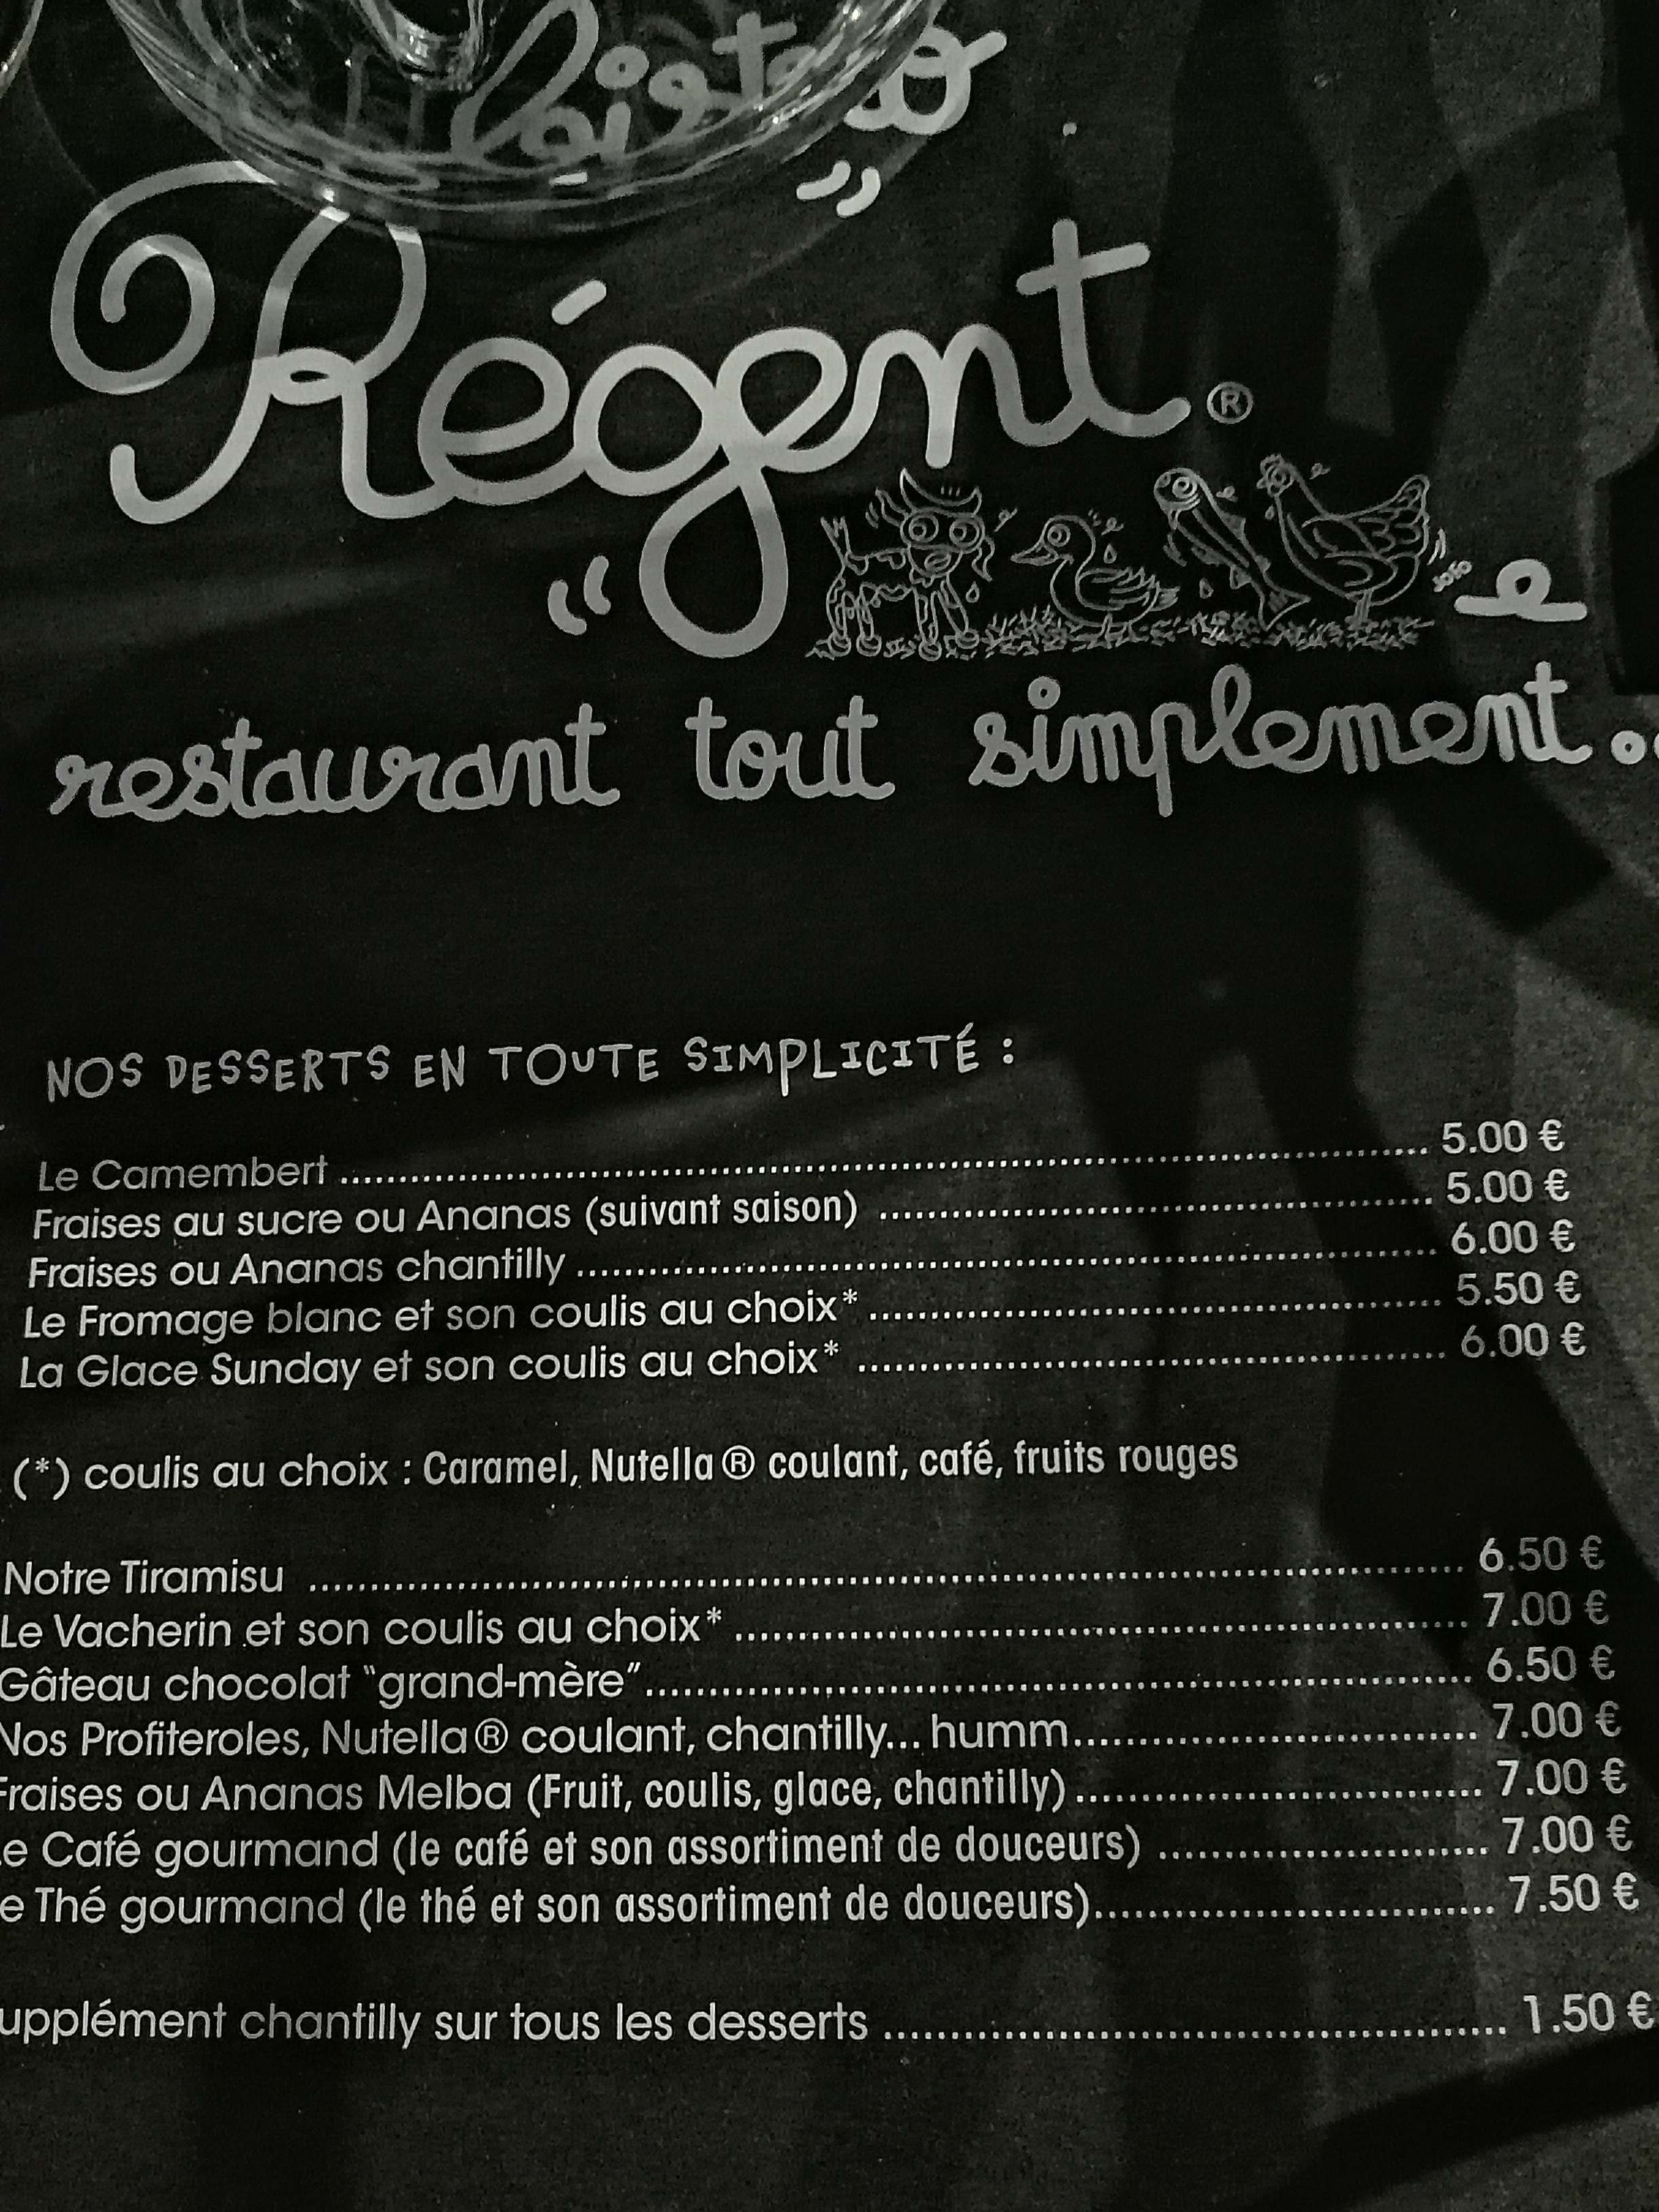 Bistro
Régent.®
" jofo e
restaurant tout simplement..
NOS DESSERTS EN TOUTE SIMPLICITÉ :
Le Camembert ........ 5.00 €
Fraises au sucre ou Ananas (suivant saison) ........ 5.00 €
Fraises ou Ananas chantilly ........ 6.00 €
Le Fromage blanc et son coulis au choix* ........ 5.50 €
La Glace Sunday et son coulis au choix* ........ 6.00 €
(*) coulis au choix : Caramel, Nutella® coulant, café, fruits rouges
Notre Tiramisu ........ 6.50 €
Le Vacherin et son coulis au choix* ........ 7.00 €
Gâteau chocolat "grand-mère" ........ 6.50 €
Nos Profiteroles, Nutella® coulant, chantilly... humm ........ 7.00 €
Fraises ou Ananas Melba (Fruit, coulis, glace, chantilly) ........ 7.00 €
Le Café gourmand (le café et son assortiment de douceurs) ........ 7.00 €
e Thé gourmand (le thé et son assortiment de douceurs) ........ 7.50 €
upplément chantilly sur tous les desserts ........ 1.50 €